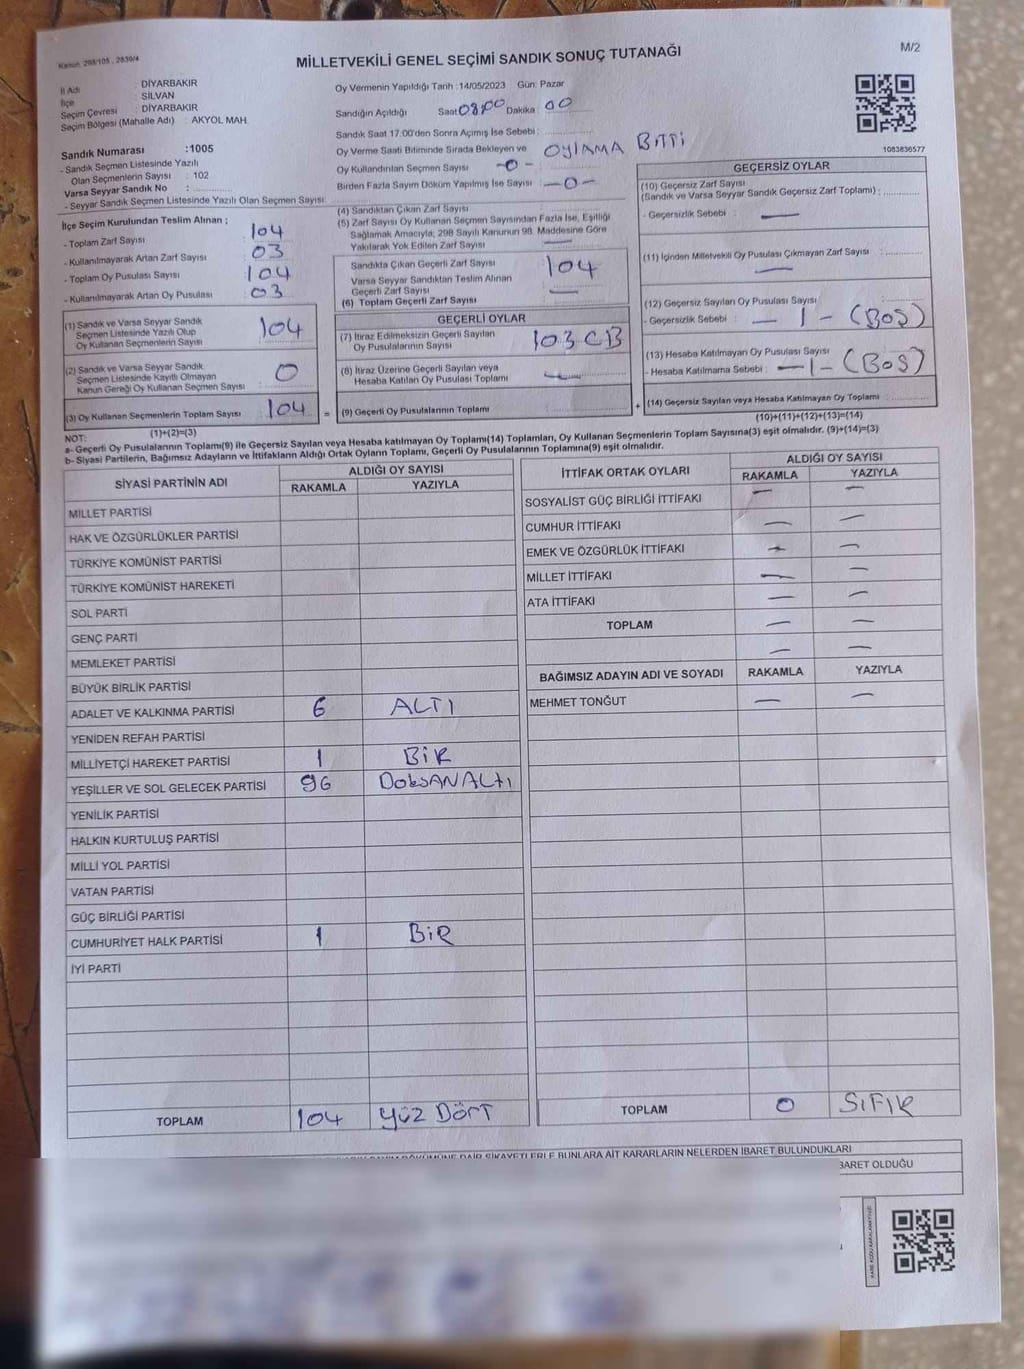 Kanun: 298/105, 2839/4
MİLLETVEKİLİ GENEL SEÇİMİ SANDIK SONUÇ TUTANAĞI
M/2
İl Adı : DİYARBAKIR
İlçe : SİLVAN
Seçim Çevresi : DİYARBAKIR
Seçim Bölgesi (Mahalle Adı) : AKYOL MAH.
Sandık Numarası :1005
- Sandık Seçmen Listesinde Yazılı
Olan Seçmenlerin Sayısı : 102
Varsa Seyyar Sandık No :
- Seyyar Sandık Seçmen Listesinde Yazılı Olan Seçmen Sayısı:
Oy Vermenin Yapıldığı Tarih :14/05/2023 Gün: Pazar
Sandığın Açıldığı Saat 08:00 Dakika 00
Sandık Saat 17.00'den Sonra Açımış İse Sebebi :
Oy Verme Saati Bitiminde Sırada Bekleyen ve OYLAMA BİTTİ
Oy Kullandırılan Seçmen Sayısı -0-
Birden Fazla Sayım Döküm Yapılmış İse Sayısı -0-
1083836577
İlçe Seçim Kurulundan Teslim Alınan ;
- Toplam Zarf Sayısı 104
- Kullanılmayarak Artan Zarf Sayısı 03
- Toplam Oy Pusulası Sayısı 104
- Kullanılmayarak Artan Oy Pusulası 03
(1) Sandık ve Varsa Seyyar Sandık
Seçmen Listesinde Yazılı Olup
Oy Kullanan Seçmenlerin Sayısı 104
(2) Sandık ve Varsa Seyyar Sandık
Seçmen Listesinde Kayıtlı Olmayan
Kanun Gereği Oy Kullanan Seçmen Sayısı 0
(3) Oy Kullanan Seçmenlerin Toplam Sayısı 104 =
(1)+(2)=(3)
(4) Sandıktan Çıkan Zarf Sayısı
(5) Zarf Sayısı Oy Kullanan Seçmen Sayısından Fazla İse, Eşitliği
Sağlamak Amacıyla, 298 Sayılı Kanunun 98. Maddesine Göre
Yakılarak Yok Edilen Zarf Sayısı —
Sandıkta Çıkan Geçerli Zarf Sayısı 104
Varsa Seyyar Sandıktan Teslim Alınan
Geçerli Zarf Sayısı —
(6) Toplam Geçerli Zarf Sayısı
GEÇERLİ OYLAR
(7) İtiraz Edilmeksizin Geçerli Sayılan
Oy Pusulalarının Sayısı 103 CB
(8) İtiraz Üzerine Geçerli Sayılan veya
Hesaba Katılan Oy Pusulası Toplamı —
(9) Geçerli Oy Pusulalarının Toplamı +
GEÇERSİZ OYLAR
(10) Geçersiz Zarf Sayısı
(Sandık ve Varsa Seyyar Sandık Geçersiz Zarf Toplamı) :
- Geçersizlik Sebebi : —
(11) İçinden Milletvekili Oy Pusulası Çıkmayan Zarf Sayısı :
—
(12) Geçersiz Sayılan Oy Pusulası Sayısı
- Geçersizlik Sebebi : — 1 - (BOŞ)
(13) Hesaba Katılmayan Oy Pusulası Sayısı
- Hesaba Katılmama Sebebi : — 1 - (BOŞ)
(14) Geçersiz Sayılan veya Hesaba Katılmayan Oy Toplamı
(10)+(11)+(12)+(13)=(14)
NOT:
a- Geçerli Oy Pusulalarının Toplamı(9) ile Geçersiz Sayılan veya Hesaba katılmayan Oy Toplamı(14) Toplamları, Oy Kullanan Seçmenlerin Toplam Sayısına(3) eşit olmalıdır. (9)+(14)=(3)
b- Siyasi Partilerin, Bağımsız Adayların ve İttifakların Aldığı Ortak Oyların Toplamı, Geçerli Oy Pusulalarının Toplamına(9) eşit olmalıdır.
SİYASİ PARTİNİN ADI ALDIĞI OY SAYISI
RAKAMLA YAZIYLA
MİLLET PARTİSİ
HAK VE ÖZGÜRLÜKLER PARTİSİ
TÜRKİYE KOMÜNİST PARTİSİ
TÜRKİYE KOMÜNİST HAREKETİ
SOL PARTİ
GENÇ PARTİ
MEMLEKET PARTİSİ
BÜYÜK BİRLİK PARTİSİ
ADALET VE KALKINMA PARTİSİ 6 ALTI
YENİDEN REFAH PARTİSİ
MİLLİYETÇİ HAREKET PARTİSİ 1 BİR
YEŞİLLER VE SOL GELECEK PARTİSİ 96 DOKSANALTI
YENİLİK PARTİSİ
HALKIN KURTULUŞ PARTİSİ
MİLLİ YOL PARTİSİ
VATAN PARTİSİ
GÜÇ BİRLİĞİ PARTİSİ
CUMHURİYET HALK PARTİSİ 1 BİR
İYİ PARTİ
TOPLAM 104 YÜZ DÖRT
İTTİFAK ORTAK OYLARI ALDIĞI OY SAYISI
RAKAMLA YAZIYLA
SOSYALİST GÜÇ BİRLİĞİ İTTİFAKI — —
CUMHUR İTTİFAKI — —
EMEK VE ÖZGÜRLÜK İTTİFAKI — —
MİLLET İTTİFAKI — —
ATA İTTİFAKI — —
TOPLAM — —
— —
BAĞIMSIZ ADAYIN ADI VE SOYADI RAKAMLA YAZIYLA
MEHMET TONĞUT — —
TOPLAM 0 SIFIR
DÖKÜMÜNE DAİR ŞİKAYETLERLE BUNLARA AİT KARARLARIN NELERDEN İBARET BULUNDUKLARI
BARET OLDUĞU